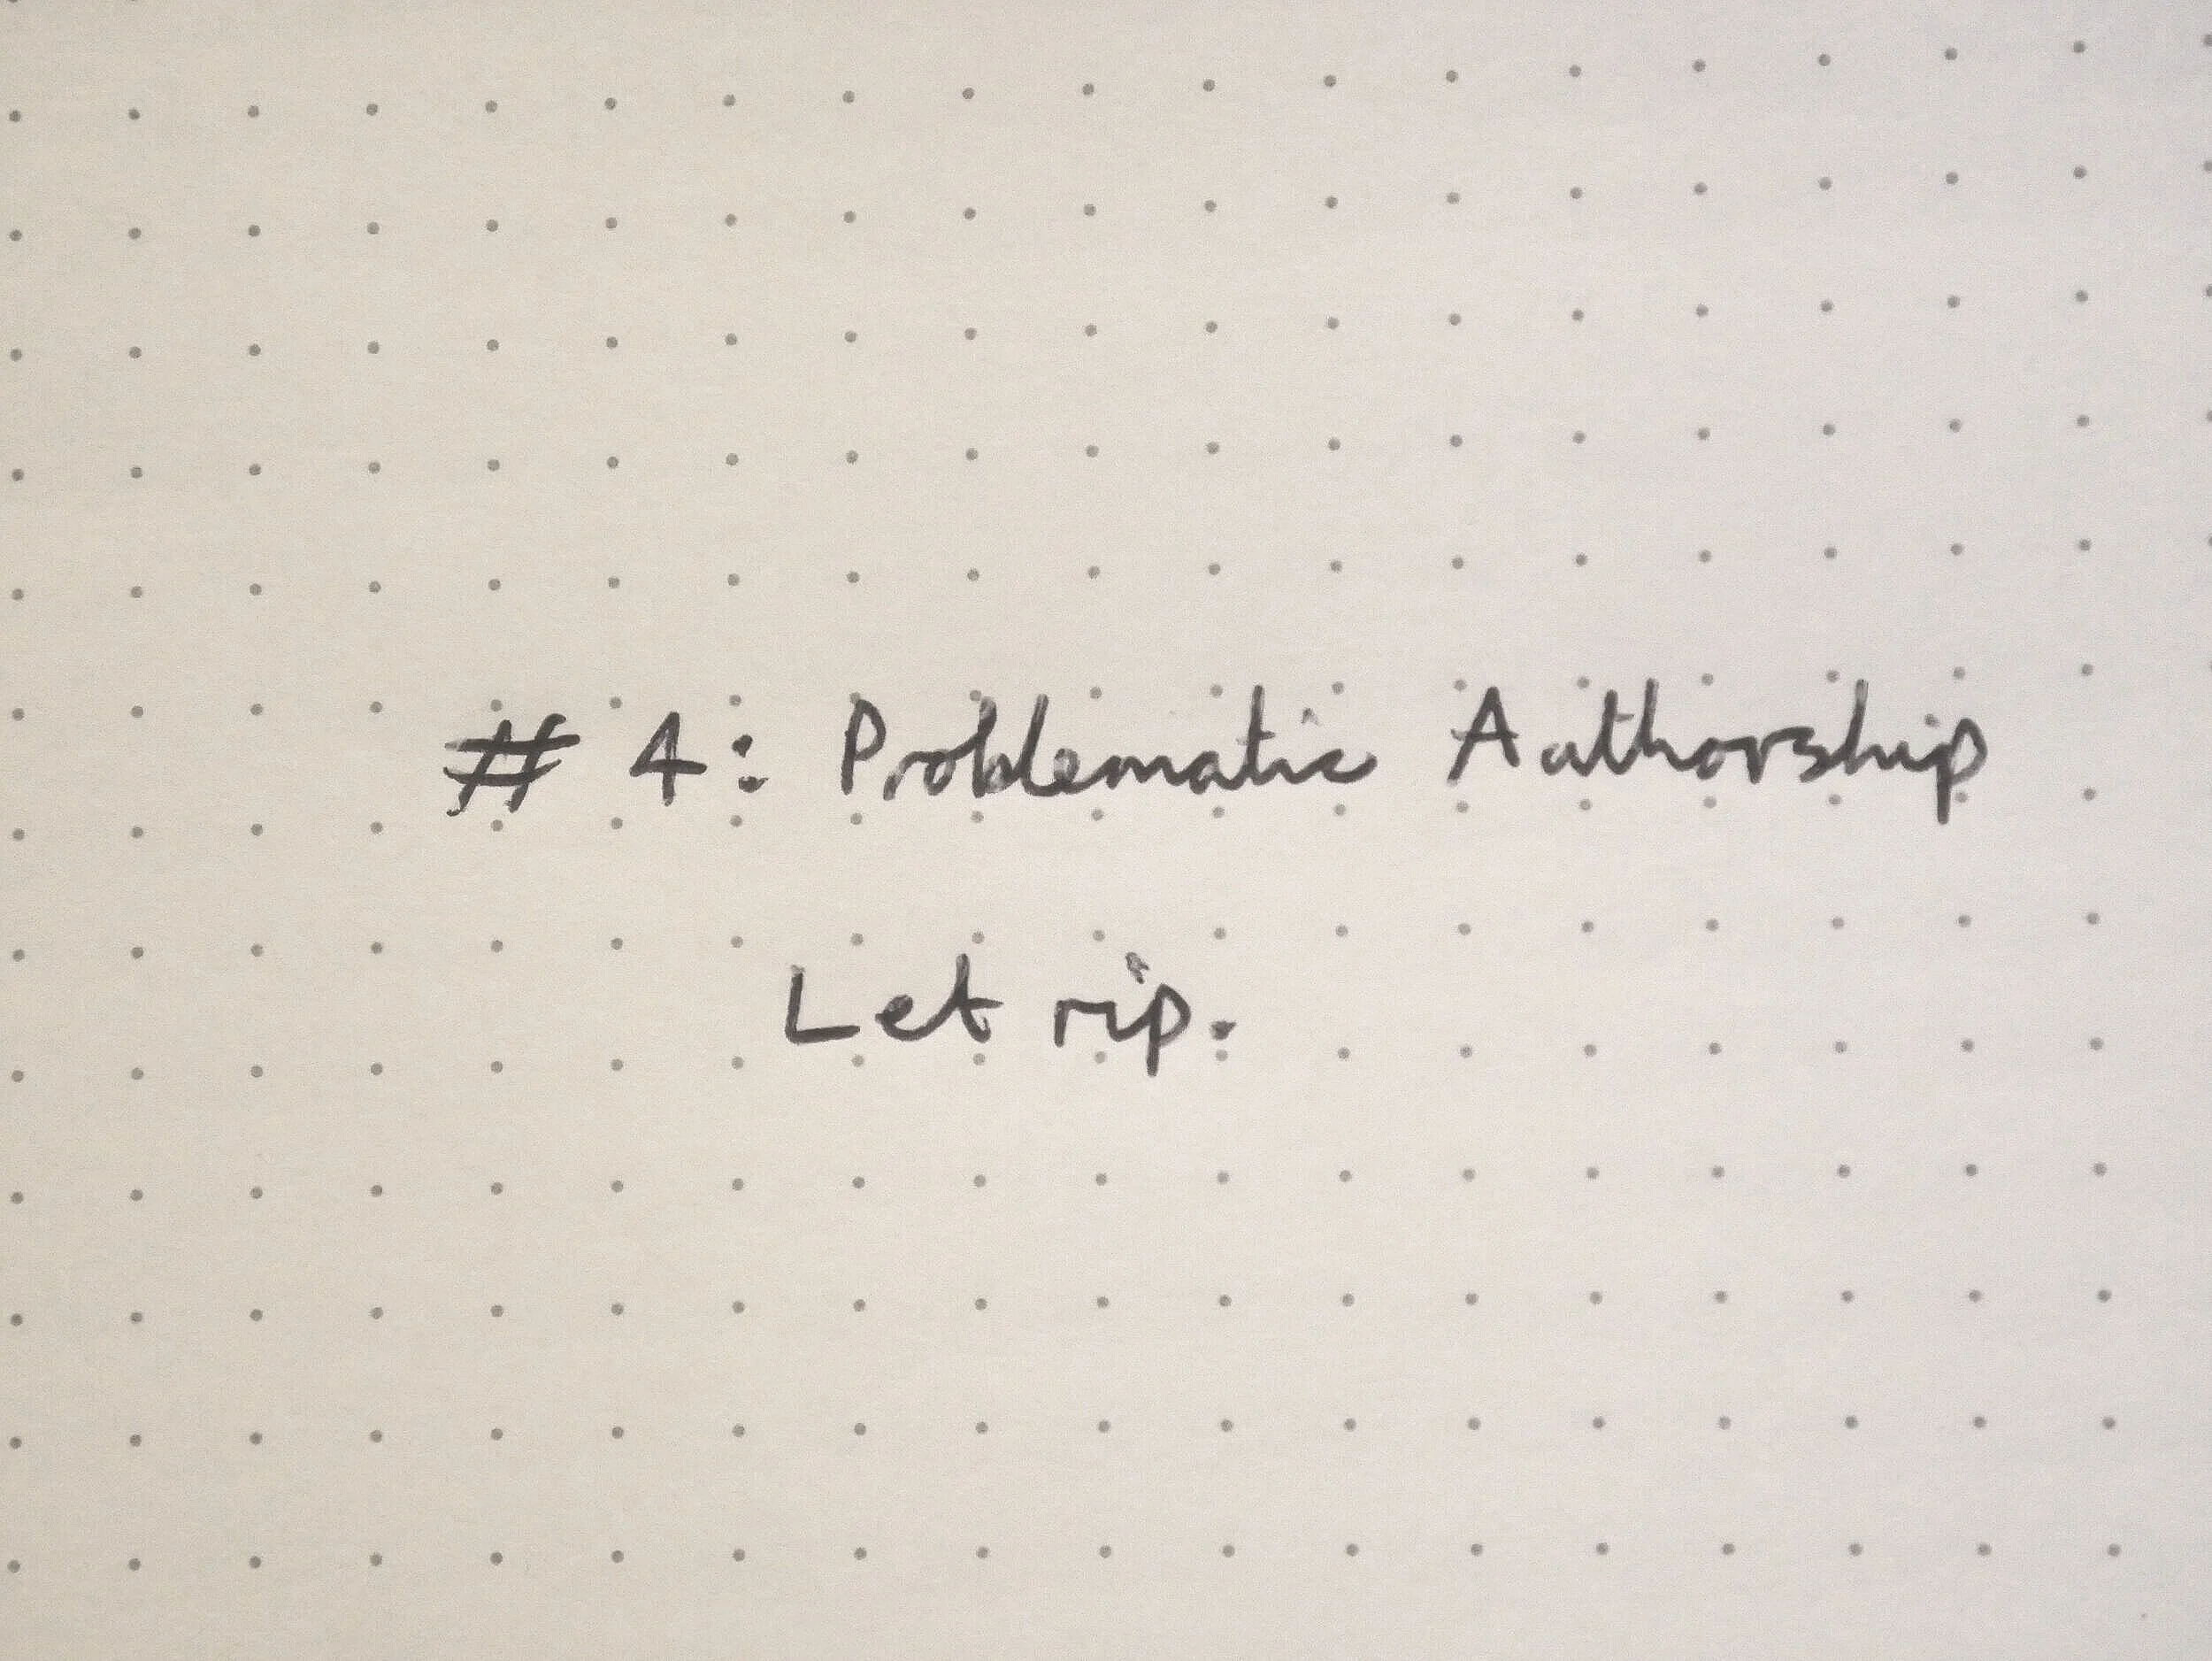 # 4: Problematic Authorship
Let rip.